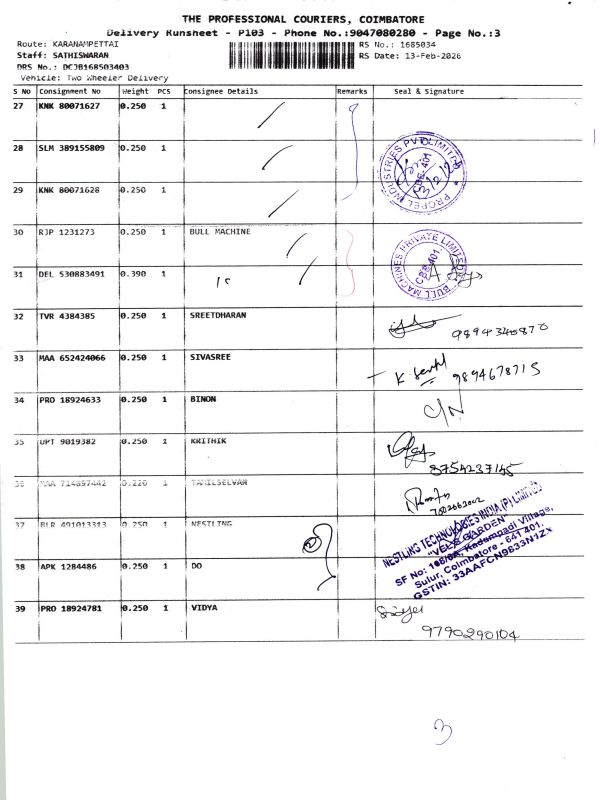 THE PROFESSIONAL COURIERS, COIMBATORE
Delivery Runsheet - P103 - Phone No.:9047080280 - Page No.:3
Route: KARANAMPETTAI
RS No.: 1685034
Staff: SATHISWARAN
RS Date: 13-Feb-2026
DRS No.: DCJB168503403
Vehicle: Two Wheeler Delivery
S No Consignment No Weight PCS Consignee Details Remarks Seal & Signature
27 KNK 80071627 0.250 1
28 SLM 389155809 0.250 1
29 KNK 80071628 0.250 1
PROPEL INDUSTRIES PVT LIMITED
CBE-401
30 RJP 1231273 0.250 1 BULL MACHINE
31 DEL 530883491 0.390 1
BULL MACHINES PRIVATE LIMITED
CBE-401
32 TVR 4384385 0.250 1 SREETDHARAN
33 MAA 652424066 0.250 1 SIVASREE
9894678715
34 PRO 18924633 0.250 1 BINON
C/N
35 UPT 9019382 0.250 1 KRITHIK
8754237145
36 MAA 714857442 0.220 1 TAMILSELVAN
37 BLR 491013313 0.250 1 NESTLING
38 APK 1284486 0.250 1 DO
NESTLING TECHNOLOGIES INDIA (P) LIMITED
"VELS GARDEN"
Kadampadi Village,
Sulur, Coimbatore - 641 401.
GSTIN: 33AAFCN9633N1ZX
39 PRO 18924781 0.250 1 VIDYA
9790290104
3